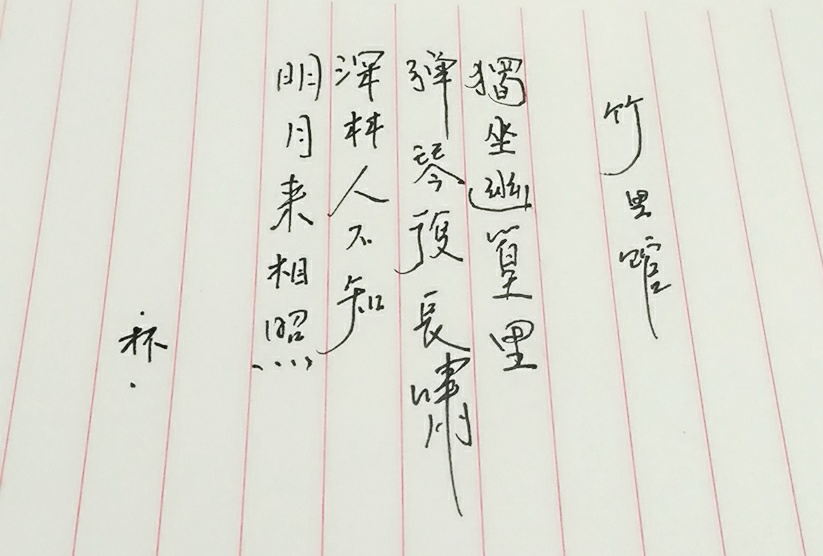 竹里館
獨坐幽篁里
弹琴復長嘯
深林人不知
明月来相照
·杯·